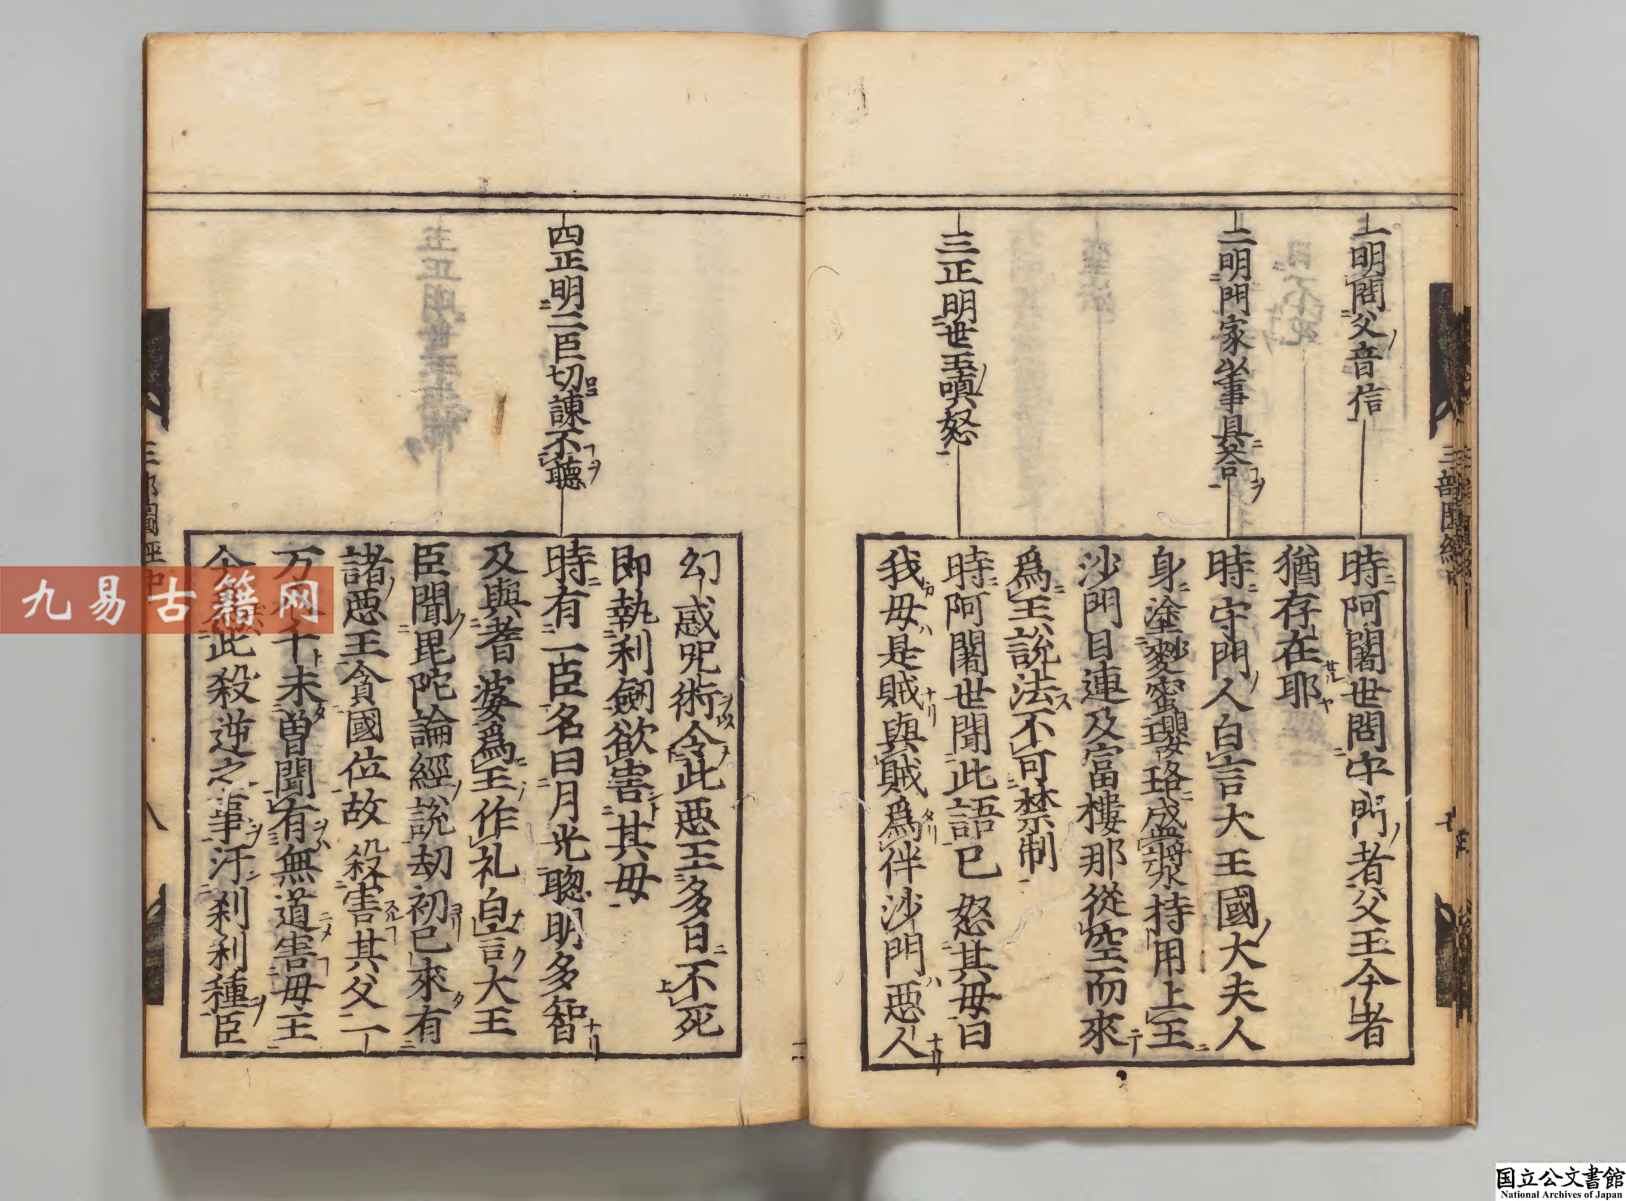 一明問父音信
二明門家以事具答
三正明世王嗔怒
時阿闍世問守門者父王今者
猶存在耶
時守門人白言大王國大夫人
身塗麨蜜瓔珞盛漿持用上王
沙門目連及富樓那從空而來
爲王說法不可禁制
時阿闍世聞此語已怒其母曰
我母是賊與賊爲伴沙門惡人
四正明二臣切諫不聽
幻惑呪術令此惡王多日不死
即執利劔欲害其母
時有一臣名曰月光聰明多智
及與耆婆爲王作礼白言大王
臣聞毘陀論經說劫初已來有
諸惡王貪國位故殺害其父一
万 千未曽聞有無道害母王
今 此殺逆之事汙刹利種臣
三部圖經
九易古籍网
国立公文書館
National Archives of Japan